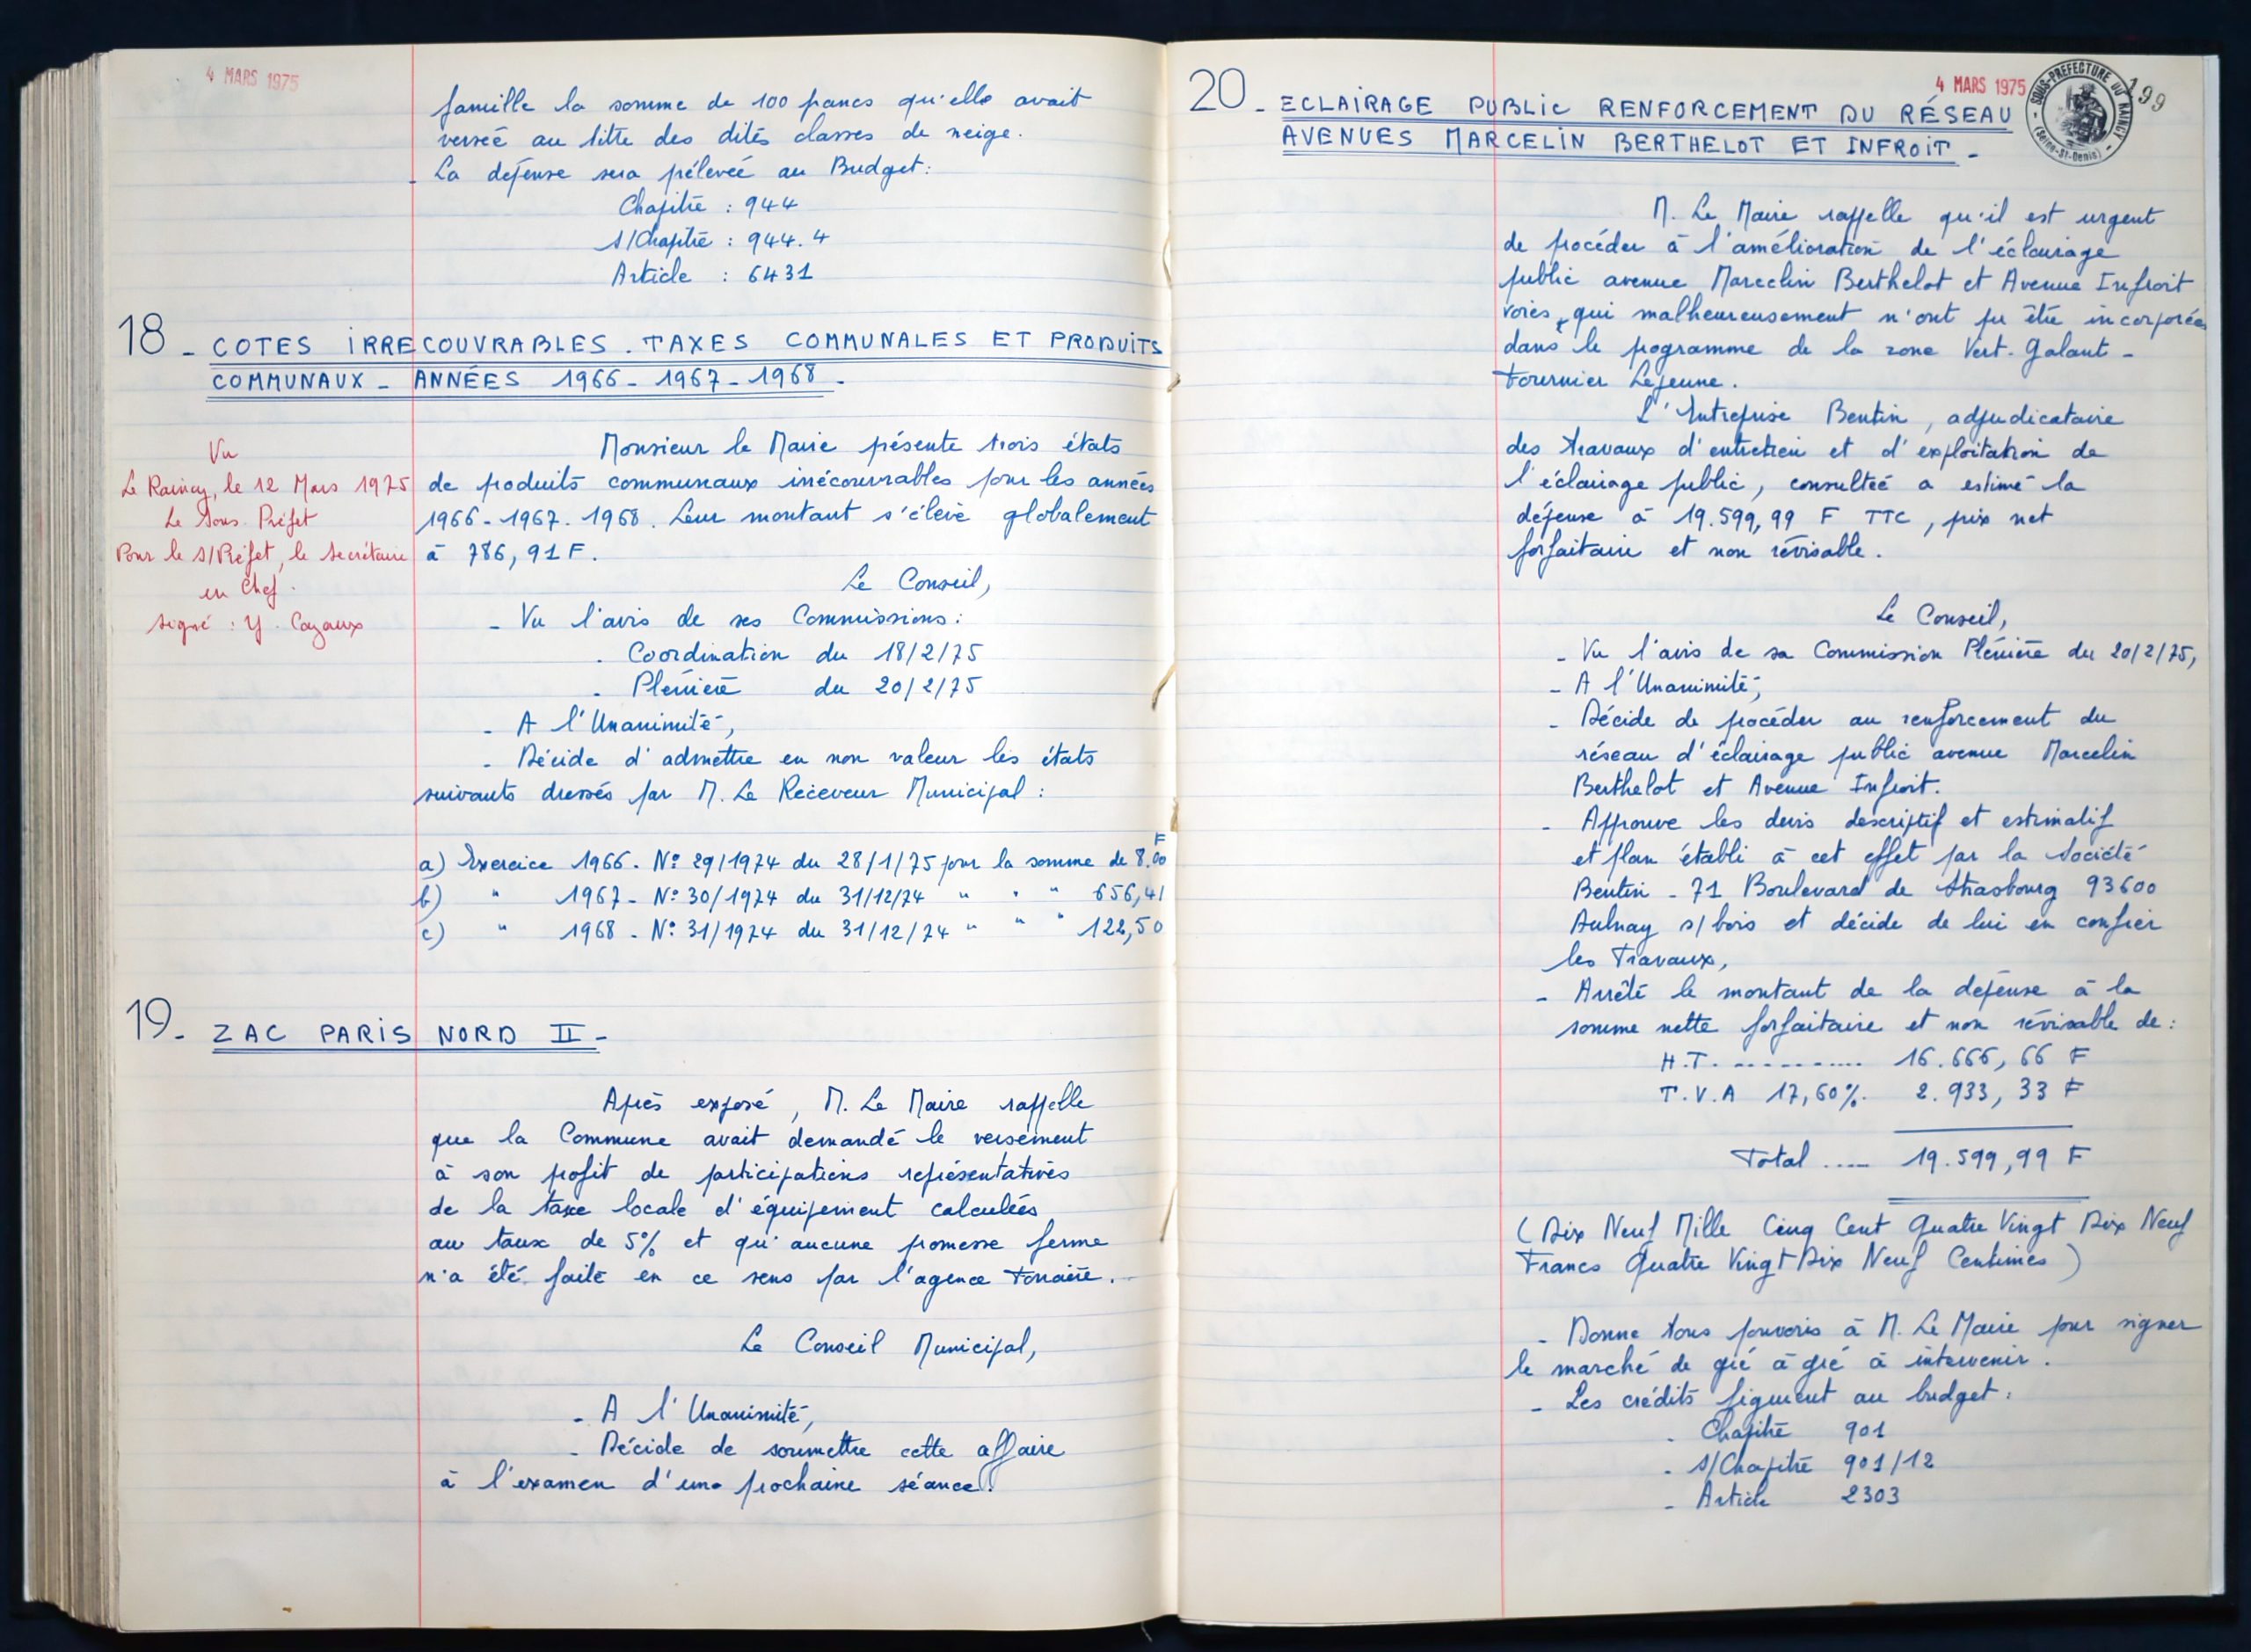 4 MARS 1975
famille la somme de 100 francs qu'elle avait
versée au titre des dites classes de neige.
- La dépense sera prélevée au Budget:
Chapitre : 944
s/Chapitre : 944.4
Article : 6431
18 - COTES IRRECOUVRABLES. TAXES COMMUNALES ET PRODUITS
COMMUNAUX - ANNÉES 1966 - 1967 - 1968 -
Vu
Le Raincy, le 12 Mars 1975
Le Sous. Préfet
Pour le s/Préfet, le secrétaire
en Chef.
signé : Y. Cazaux
Monsieur le Maire présente trois états
de produits communaux irrécouvrables pour les années
1966 - 1967. 1968. Leur montant s'élève globalement
à 786,91 F.
Le Conseil,
- Vu l'avis de ses Commissions:
. Coordination du 18/2/75
. Plénière du 20/2/75
- A l'Unanimité,
- Décide d'admettre en non valeur les états
suivants dressés par M. Le Receveur Municipal :
a) Exercice 1966. N° 29/1974 du 28/1/75 pour la somme de 8.00 F
b) " 1967 - N° 30/1974 du 31/12/74 " " " 656,41
c) " 1968 - N° 31/1974 du 31/12/74 " " " 122,50
19 - ZAC PARIS NORD II -
Après exposé, M. Le Maire rappelle
que la Commune avait demandé le versement
à son profit de participations représentatives
de la taxe locale d'équipement calculées
au taux de 5% et qu'aucune promesse ferme
n'a été faite en ce sens par l'agence Foncière.
Le Conseil Municipal,
- A l'Unanimité,
- Décide de soumettre cette affaire
à l'examen d'une prochaine séance.
4 MARS 1975
SOUS-PREFECTURE DU RAINCY
(Seine-St-Denis)
199
20 - ECLAIRAGE PUBLIC RENFORCEMENT DU RÉSEAU
AVENUES MARCELIN BERTHELOT ET INFROIT -
M. Le Maire rappelle qu'il est urgent
de procéder à l'amélioration de l'éclairage
public avenue Marcelin Berthelot et Avenue Infroit
voies, qui malheureusement n'ont pu être incorporées
dans le programme de la zone Vert. Galant -
Fournier Lejeune.
L'Entreprise Bentin, adjudicataire
des travaux d'entretien et d'exploitation de
l'éclairage public, consultée a estimé la
dépense à 19.599,99 F TTC, prix net
forfaitaire et non révisable.
Le Conseil,
- Vu l'avis de sa Commission Plénière du 20/2/75,
- A l'Unanimité,
- Décide de procéder au renforcement du
réseau d'éclairage public avenue Marcelin
Berthelot et Avenue Infroit.
- Approuve les devis descriptif et estimatif
et plan établi à cet effet par la Société
Bentin - 71 Boulevard de Strasbourg 93600
Aulnay s/bois et décide de lui en confier
les Travaux,
- Arrête le montant de la dépense à la
somme nette forfaitaire et non révisable de :
H.T. ........... 16.666,66 F
T.V.A 17,60%. 2.933,33 F
Total ..... 19.599,99 F
(Dix Neuf Mille Cinq Cent Quatre Vingt Dix Neuf
Francs Quatre Vingt Dix Neuf Centimes)
- Donne tous pouvoirs à M. Le Maire pour signer
le marché de gré à gré à intervenir.
- Les crédits figurent au budget :
. Chapitre 901
. s/Chapitre 901/12
- Article 2303